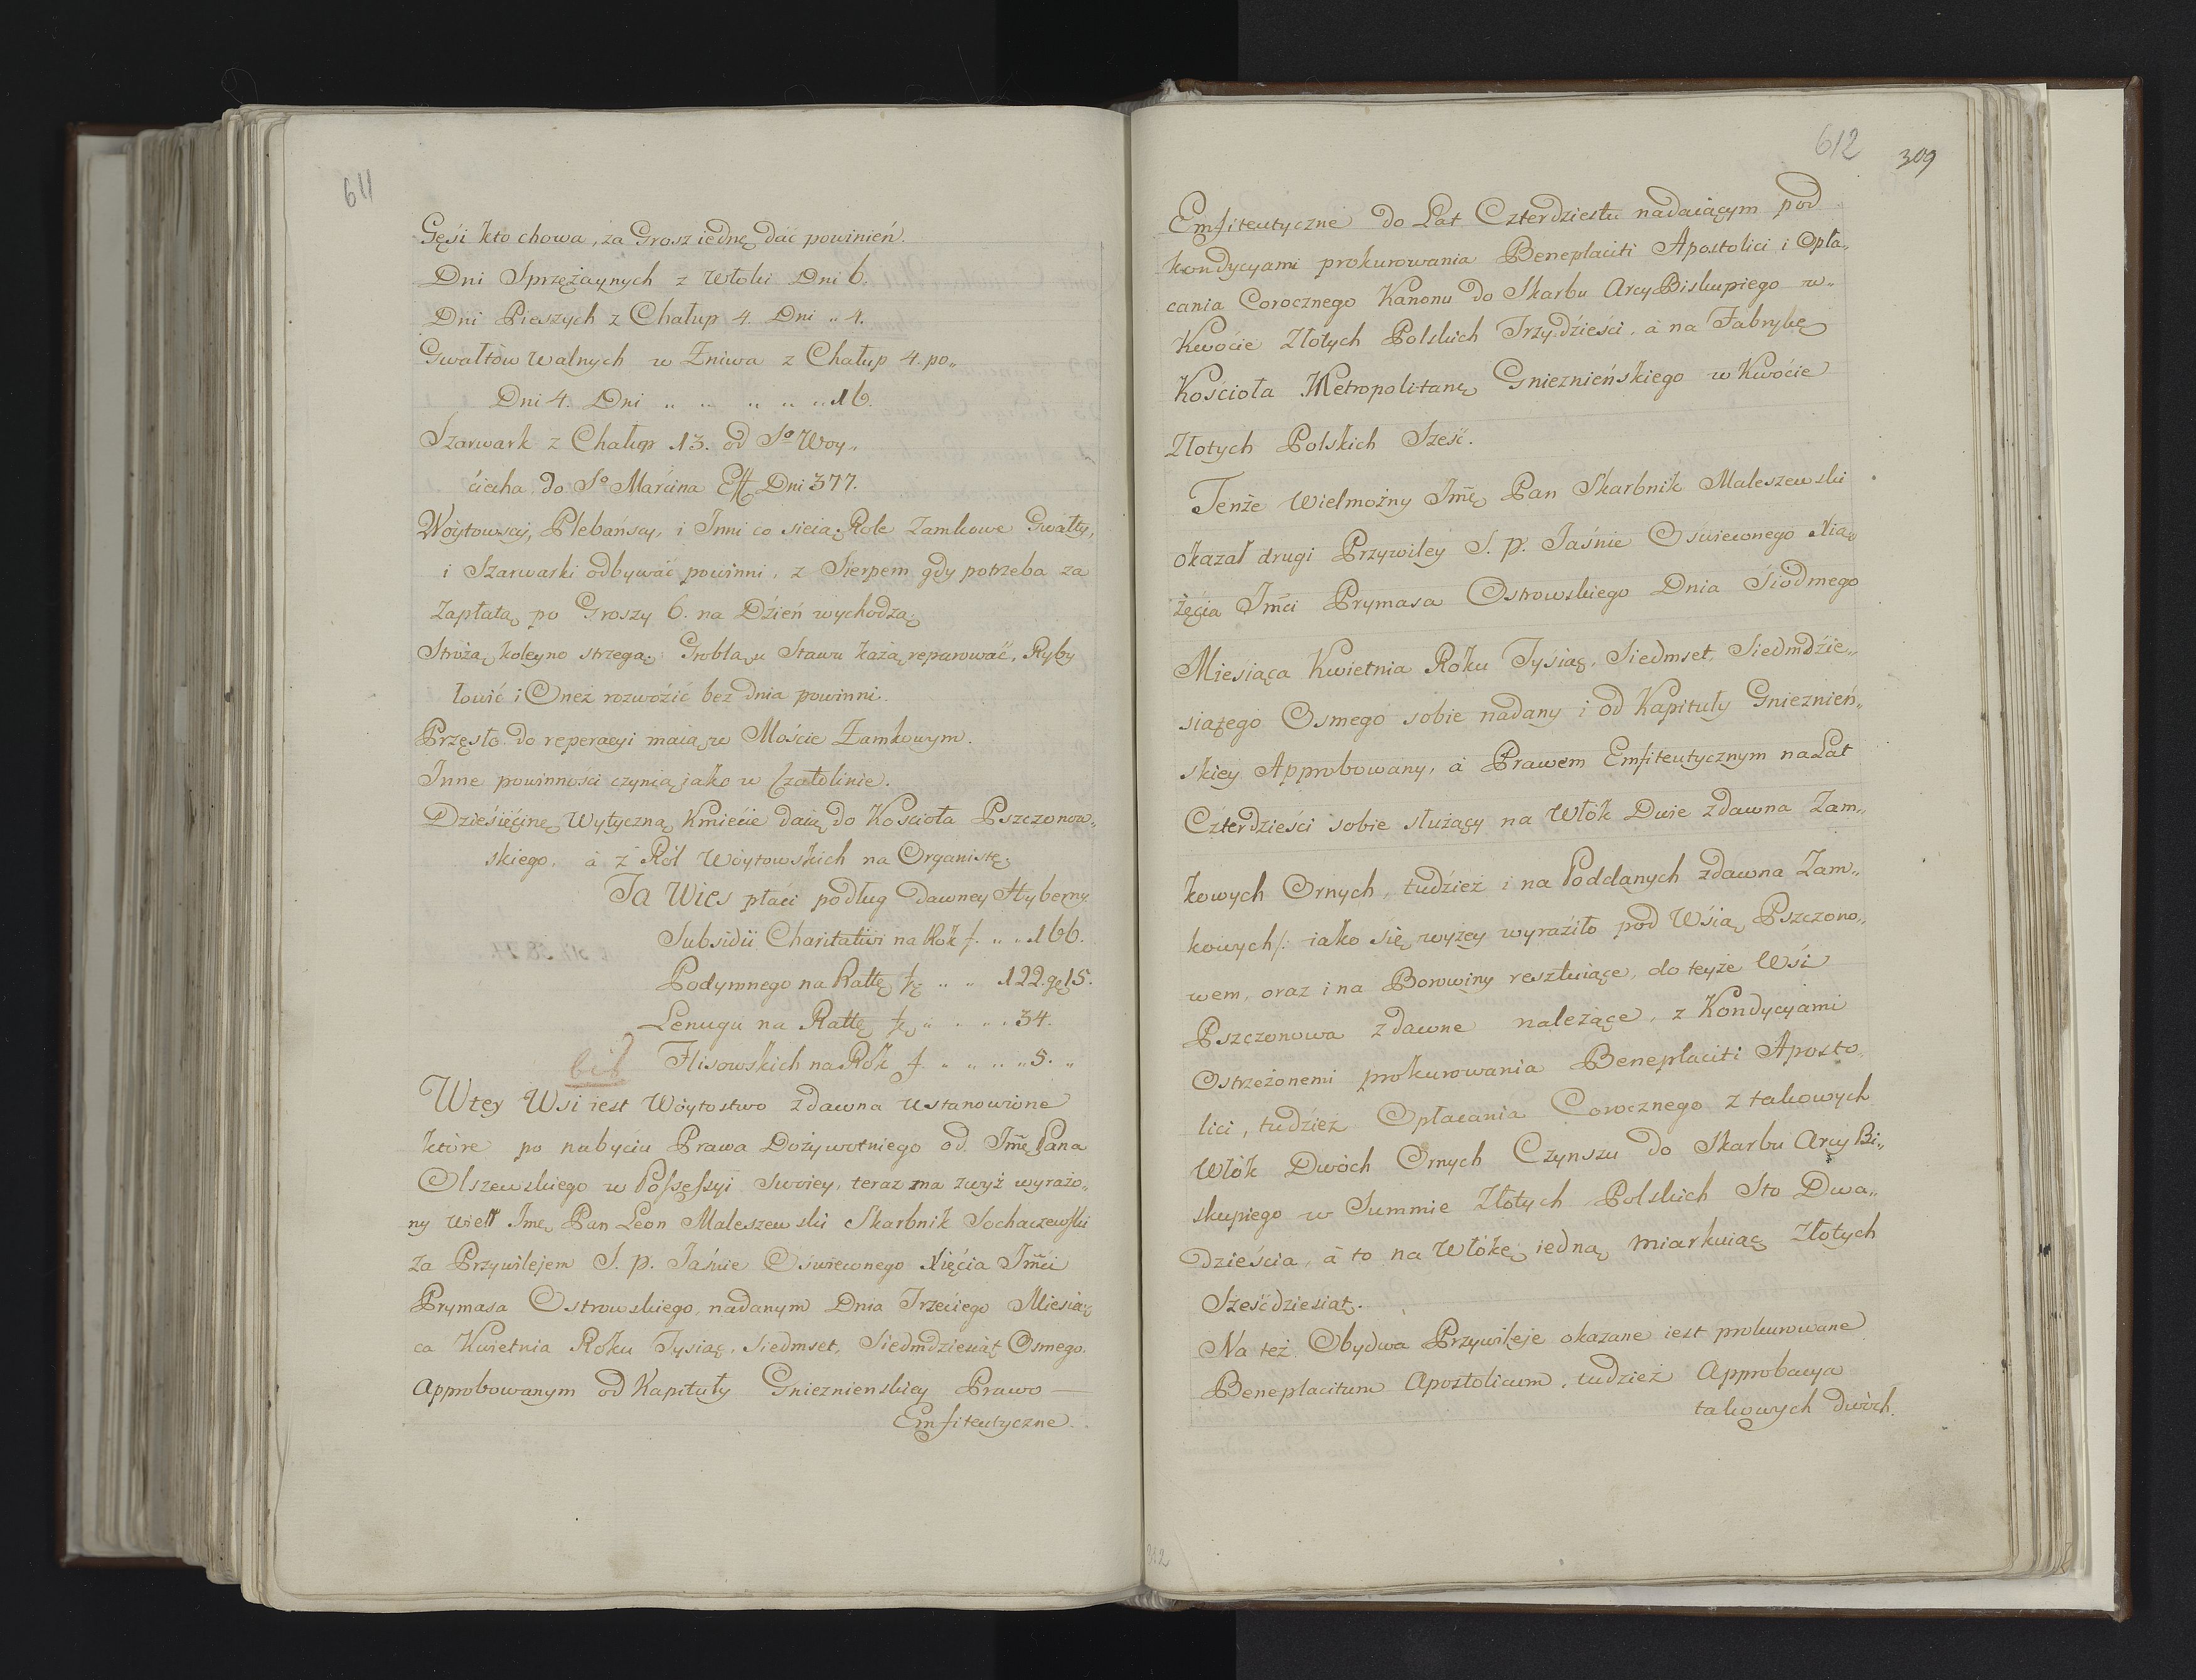 611
Gęśi kto chowa, za Grosz iednę dać powinień.
Dni Sprzężaynych z Włoki Dni 6.
Dni Pieszych z Chałup 4. Dni „ 4.
Gwałtow walnych w Żniwa z Chałup 4. po„
Dni 4. Dni „ „ „ „ „ 16.
Szarwark z Chałup 13. od So Woy„
ciecha do So Marcina Dni 377.
Woytowscy, Plebańscy, i Inni co sieią Role Zamkowe Gwałty,
i Szarwarki odbywać powinni, z Sierpem gdy potrzeba za
Zapłatą po Groszy 6. na Dźień wychodzą
Stróżą koleyno strzegą, Groblą u Stawu każą reparować, Ryby
łowić i Oneż rozwoźić bez dnia powinni.
Przęsło do reperacyi maią w Mośćie Zamkowym.
Inne powinności czynią jako w Czatolinie.
Dźieśięćinę Wytyczną Kmiećie daią do Kościoła Pszczonow„
skiego, á z Ról Woytowskich na Organistę.
Ta Wieś płaci podług Dawney Hyberny
Subsidii Charitativi na Rok f. „ „ 166.
Podymnego na Rattę „ „ 122. gr 15.
Lenugu na Rattę „ „ „ 34.
Flisowskich na Rok f. „ „ „ „ 5. „
W tey Wsi iest Woytostwo zdawna ustanowione
które po nabyciu Prawa Dożywotniego od Jmę Pana
Olszewskiego w Possessyi swoiey, teraz ma zwyż wyrażo„
ny Jmę Pan Leon Maleszewski Skarbnik Sochaczewski
za Przywilejem S. p. Jaśnie Oświeconego Xięćia Jmći
Prymasa Ostrowskiego, nadanym Dnia Trzećiego Mieśią„
ca Kwietnia Roku Tysiąc, Siedmset, Siedmdziesiąt Osmego.
Approbowanym od Kapituły Gnieznienskiey Prawo —
Emfiteutyczne.
612
309
Emfiteutyczne do Lat Czterdziestu nadaiącym pod
kondycyami prokurowania Beneplaciti Apostolici i Opła„
cania Corocznego Kanonu do Skarbu ArcyBiskupiego w„
Kwoćie Złotych Polskich Trzydźieśći, á na Fabrykę
Kościoła Metropolitanę Gnieznieńskiego w Kwoćie
Złotych Polskich Sześć.
Tenże Wielmożny Jmę Pan Skarbnik Maleszewski
okazał drugi Przywiley S. p. Jaśnie Oświeconego Xią„
żęćia Jmći Prymasa Ostrowskiego Dnia Śiodmego
Miesiąca Kwietnia Roku Tysiąc, Siedmset, Siedmdźie„
siątego Osmego sobie nadany i od Kapituły Gnieznień„
skiey Approbowany, á Prawem Emfiteutycznym na Lat
Czterdzieści sobie służący na Włók Dwie zdawna Zam„
kowych Ornych, tudźież i na Poddanych zdawna Zam„
kowych /: iako się wyżey wyraźiło pod Wśią Pszczono„
wem, oraz i na Borowiny resztuiące, do teyże Wsi
Pszczonowa zdawne należące, z Kondycyami
Ostrzeżonemi prokurowania Beneplaciti Aposto„
lici, tudźież Opłacania Corocznego z takowych
Włók Dwóch Ornych Czynszu do Skarbu Arcy Bi„
skupiego w Summie Złotych Polskich Sto Dwa„
dzieścia, á to na Włókę iedną miarkuiąc Złotych
Sześćdziesiąt.
Na też Obydwa Przywileje okazane iest prokurowane
Beneplacitum Apostolicum, tudzież Approbacya
takowych dwóch.
312